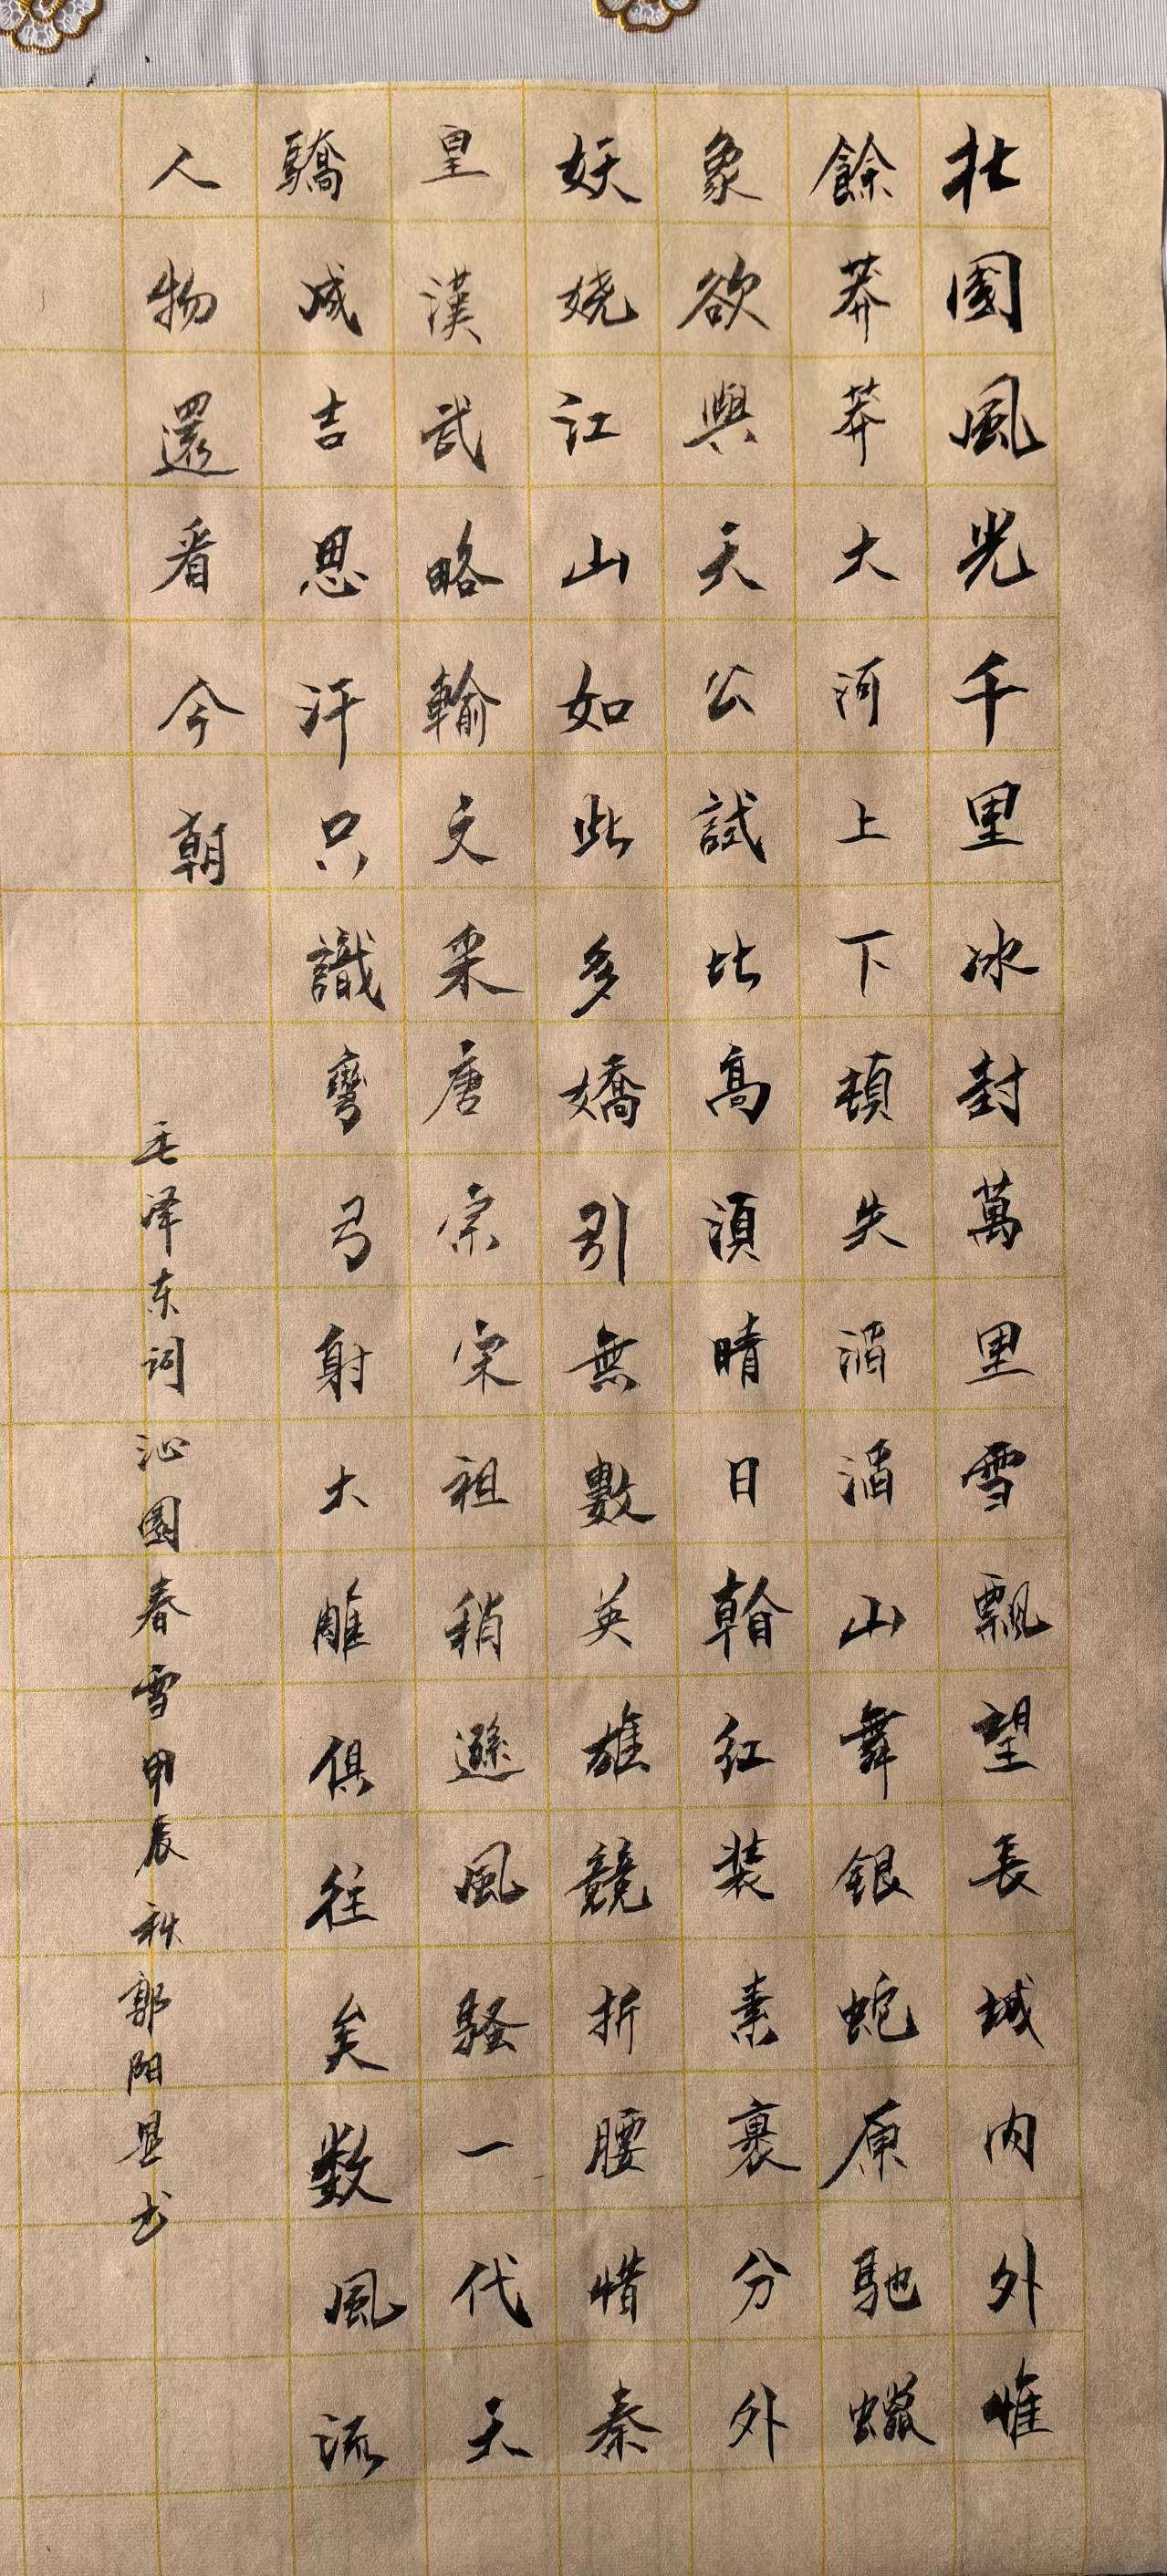 北國風光千里冰封萬里雪飄望長城内外惟
餘莽莽大河上下頓失滔滔山舞銀蛇原馳蠟
象欲與天公試比高須晴日看紅装素裹分外
妖娆江山如此多嬌引無數英雄競折腰惜秦
皇漢武略輸文采唐宗宋祖稍遜風騷一代天
驕成吉思汗只識彎弓射大雕俱往矣数風流
人物還看今朝
毛泽东词沁園春雪甲辰秋郭阳书